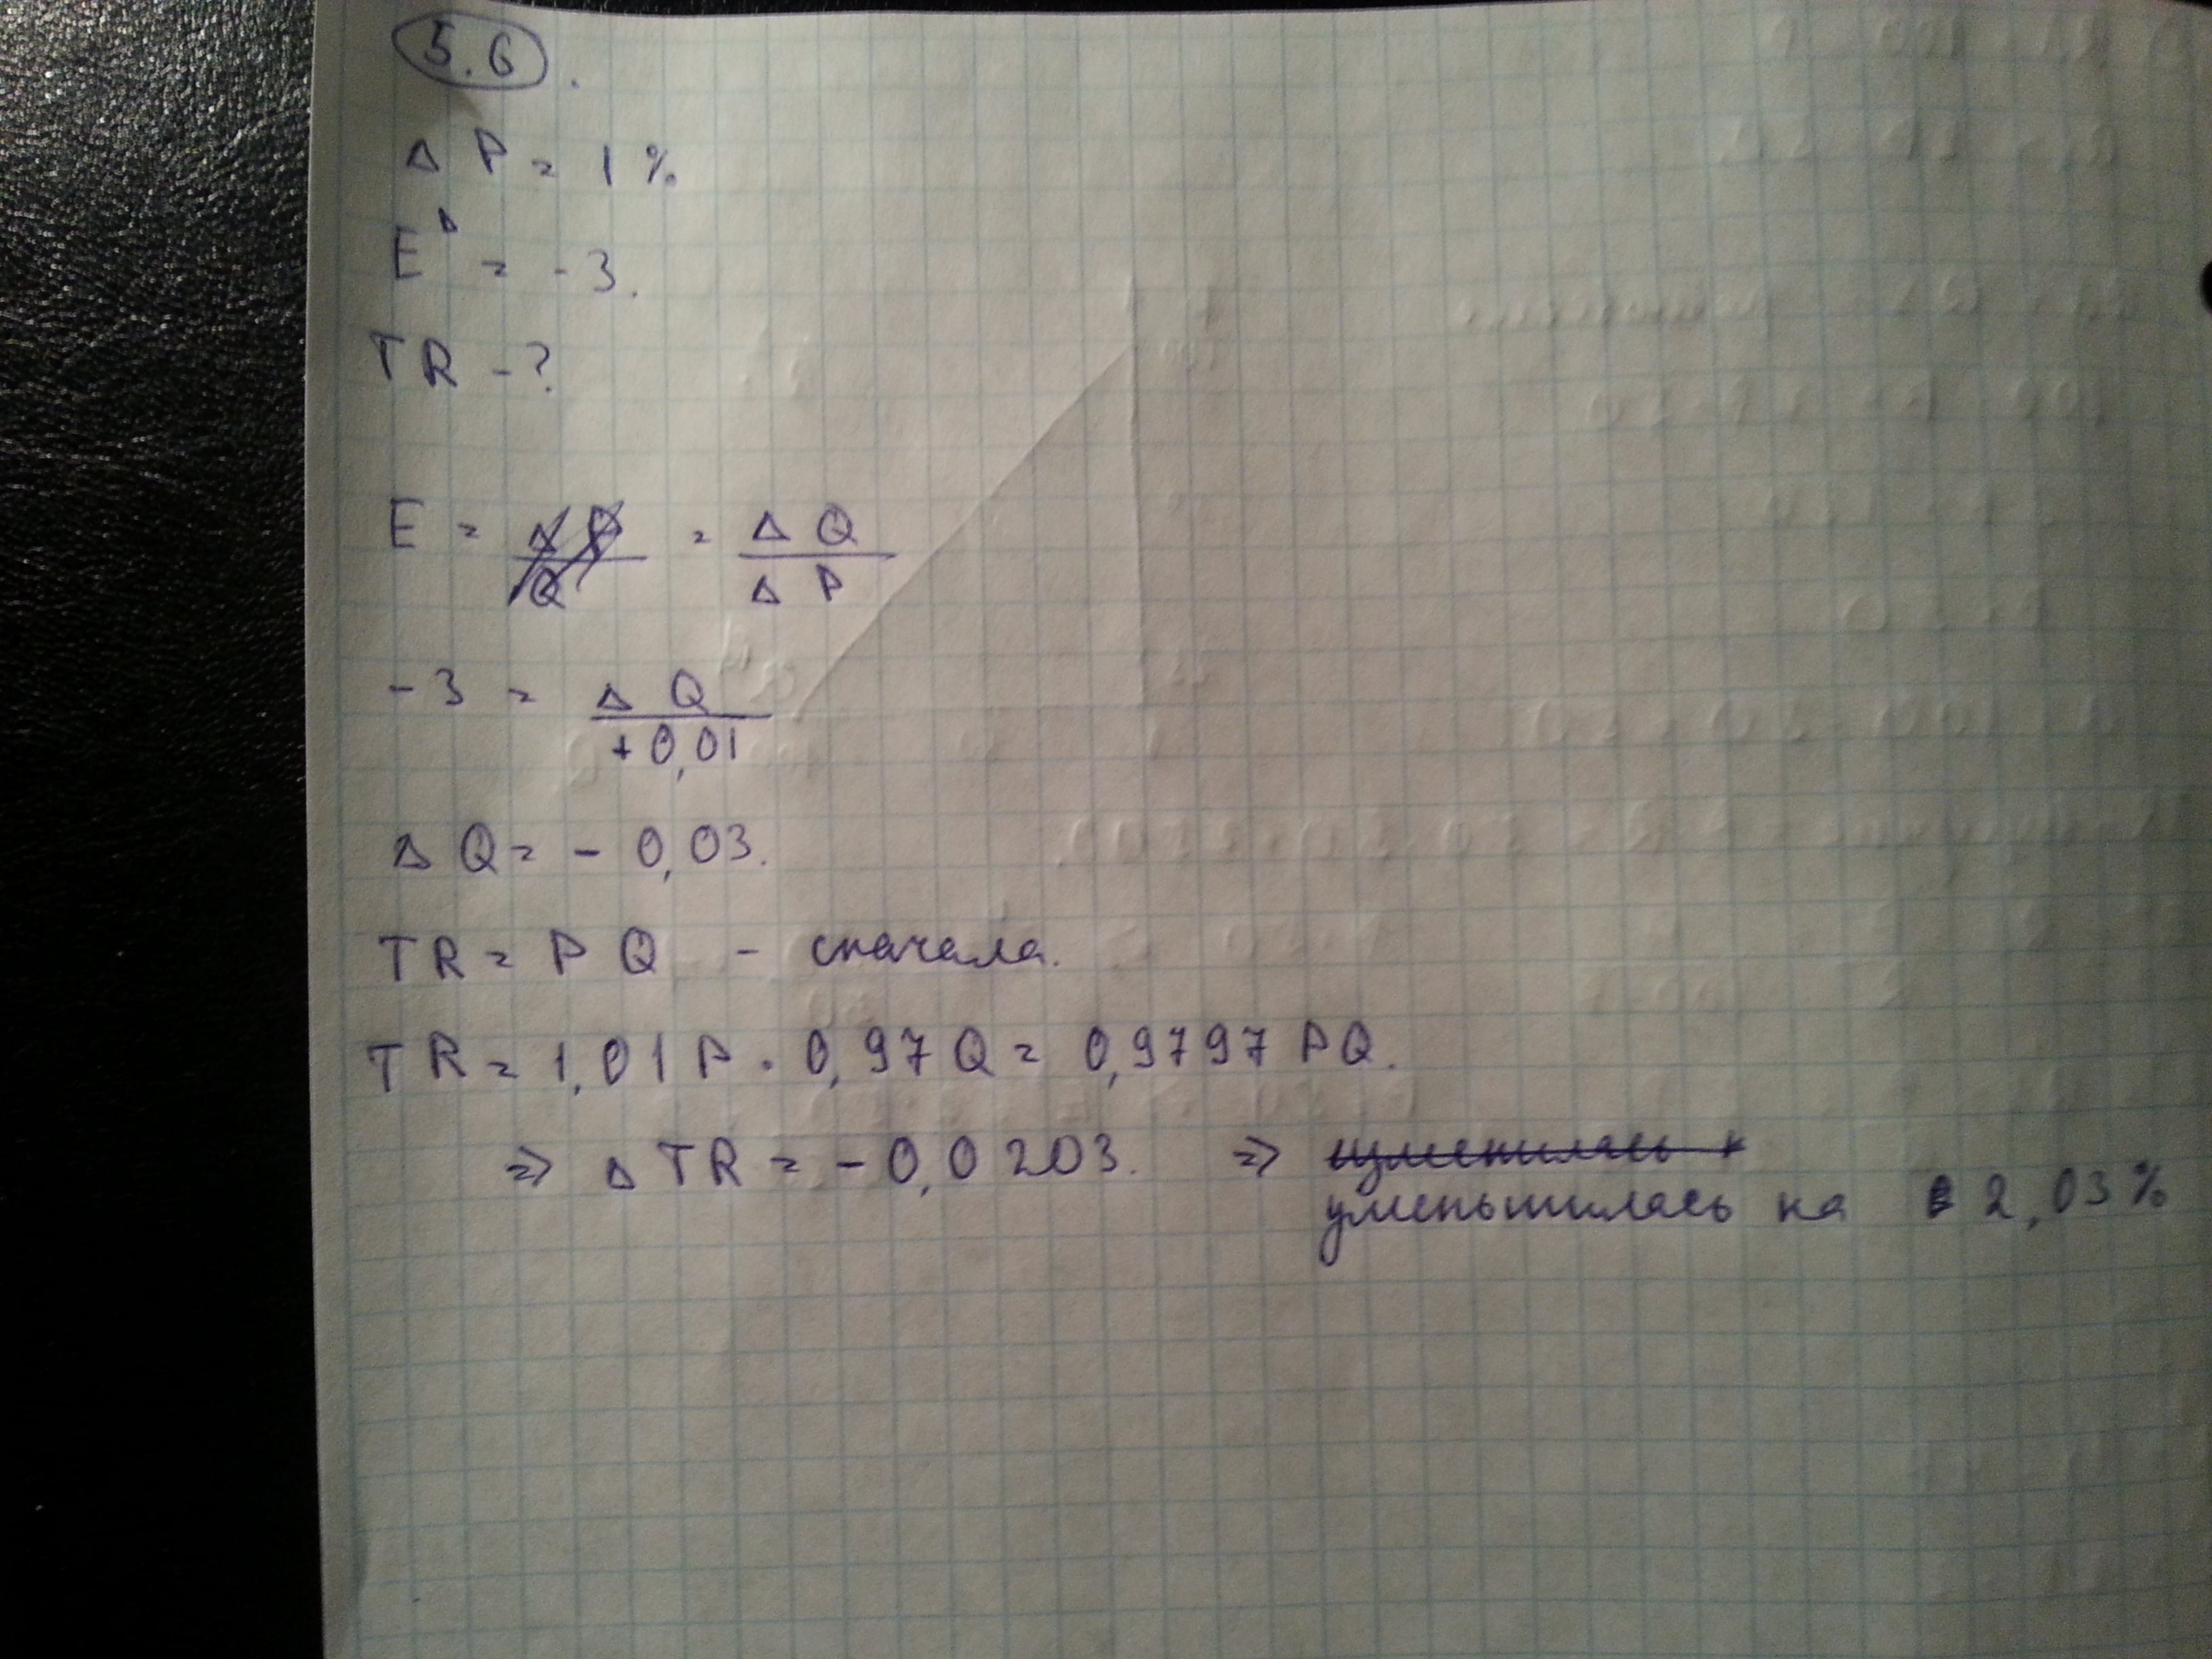 5.6.
Δ P = 1 %
E^D = -3.
TR - ?
E = ΔP/Q = ΔQ/ΔP
-3 = ΔQ/+0,01
ΔQ = - 0,03.
TR = PQ - сначала.
TR = 1,01P · 0,97Q = 0,9797 PQ.
⇒ ΔTR = -0,0203. ⇒ изменилась
уменьшилась на 2,03%